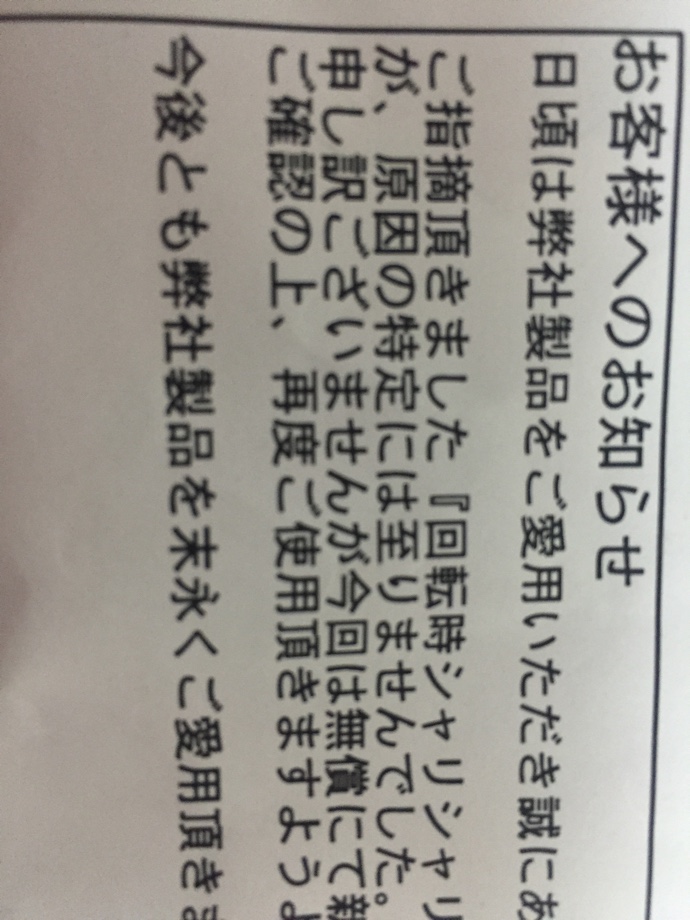 お客様へのお知らせ
日頃は弊社製品をご愛用いただき誠にあ
ご指摘頂きました『回転時シャリシャリ
が、原因の特定には至りませんでした。
申し訳ございませんが今回は無償にて新
ご確認の上、再度ご使用頂きますようよ
今後とも弊社製品を末永くご愛用頂きま